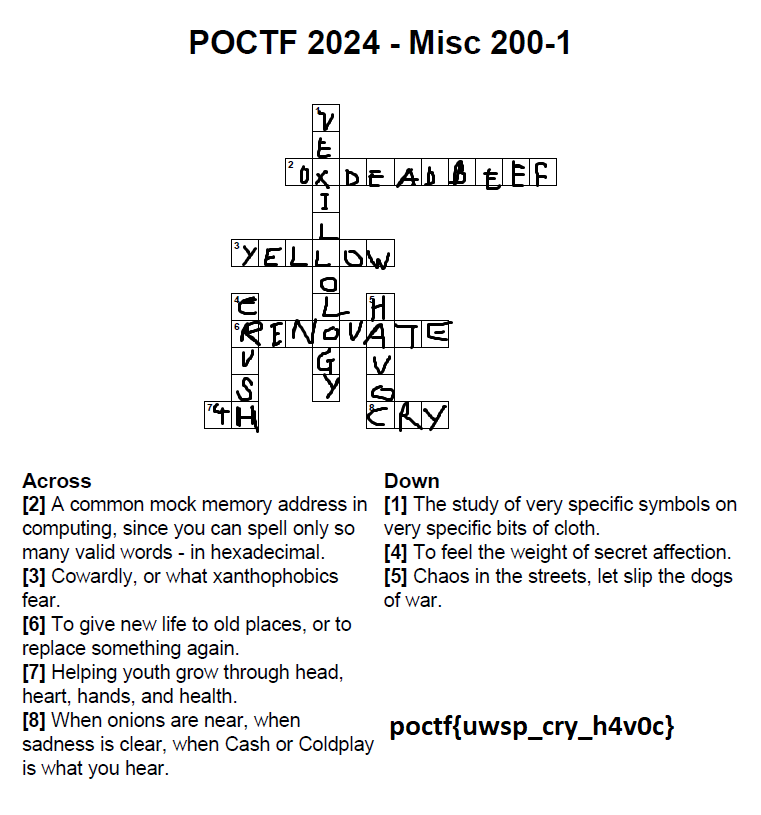 POCTF 2024 - Misc 200-1
1 V
E
2 0XDEADBEEF
I
L
3 YELLOW
O
4 C L 5 H
6 RENOVATE
U G V
S Y O
7 4H 8 CRY
Across
[2] A common mock memory address in
computing, since you can spell only so
many valid words - in hexadecimal.
[3] Cowardly, or what xanthophobics
fear.
[6] To give new life to old places, or to
replace something again.
[7] Helping youth grow through head,
heart, hands, and health.
[8] When onions are near, when
sadness is clear, when Cash or Coldplay
is what you hear.
Down
[1] The study of very specific symbols on
very specific bits of cloth.
[4] To feel the weight of secret affection.
[5] Chaos in the streets, let slip the dogs
of war.
poctf{uwsp_cry_h4v0c}